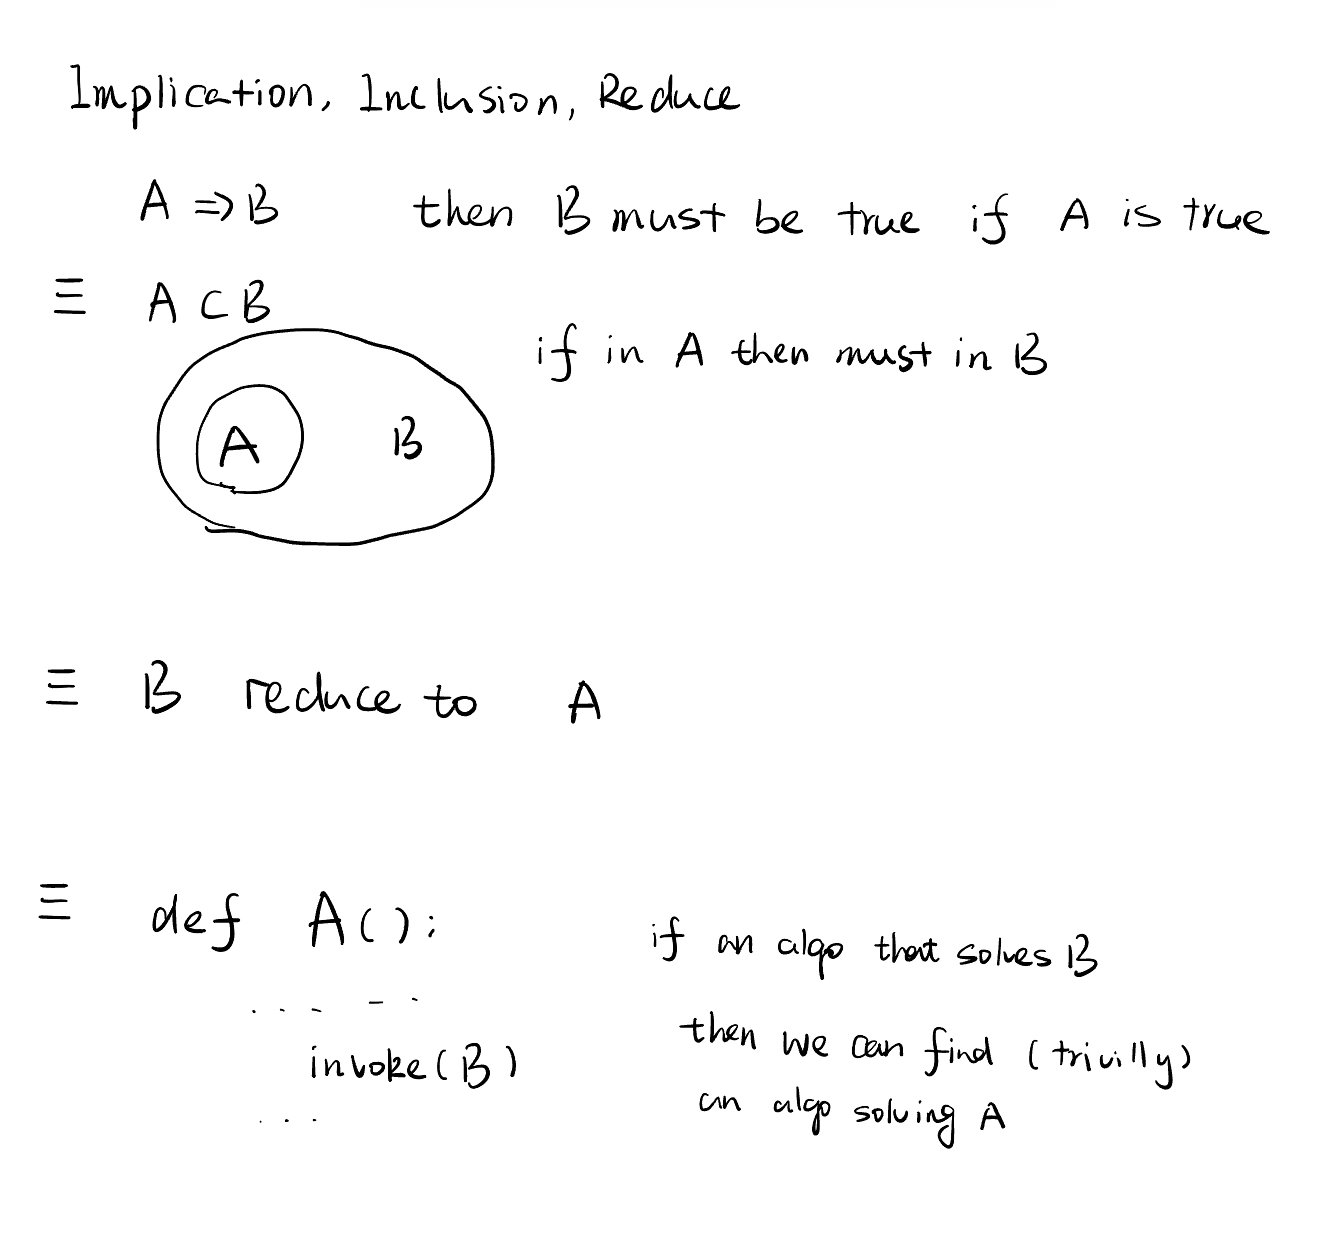 Implication, Inclusion, Reduce
A ⇒ B then B must be true if A is true
≡ A ⊂ B
if in A then must in B
A B
≡ B reduce to A
≡ def A():
if an algo that solves B
.... - .
then we can find (trivilly)
invoke(B)
an algo solving A
...